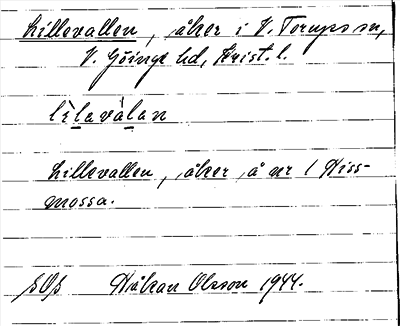 Lillevallen, åker i V. Torups sn,
V. Göinge hd, Krist. l.
lìlavàlan
Lillevallen, åker å nr 1 Hiss-
mossa.
SOS Håkan Olsson 1944.